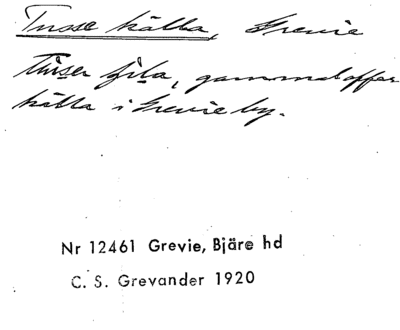 Tusse källa, Grevie
Tusser fila, gammal offer
källa i Grevie by.
Nr 12461 Grevie, Bjäre hd
C. S. Grevander 1920